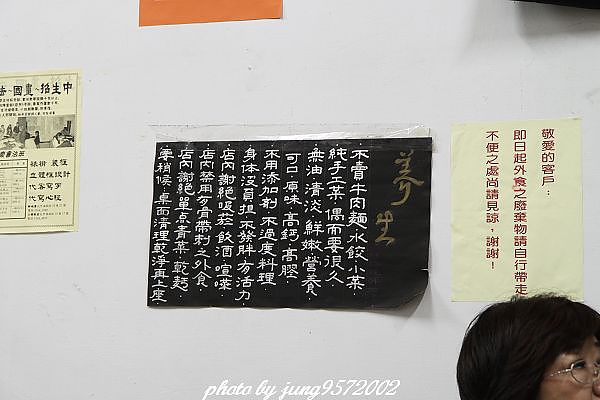 養生
不賣牛肉麵.水餃小菜.
純手工菜.偶而要很久.
無油.清淡.鮮嫩.營養.
可口.原味.高鈣.高膠.
不用添加劑.不過度料理.
身体沒負担.不發胖.有活力.
店內謝絕吸菸.飲酒.喧嘩.
店內禁用有骨帶刺之外食.
店內謝絕單点青菜.乾麵.
需稍候.桌面清理乾淨再上座.
敬愛的客戶：
即日起外食之廢棄物請自行帶走
不便之處尚請見諒，謝謝！
中生招~畫國~
裱褙
立體框設計
代客寫字
代寫心經
photo by jung9572002